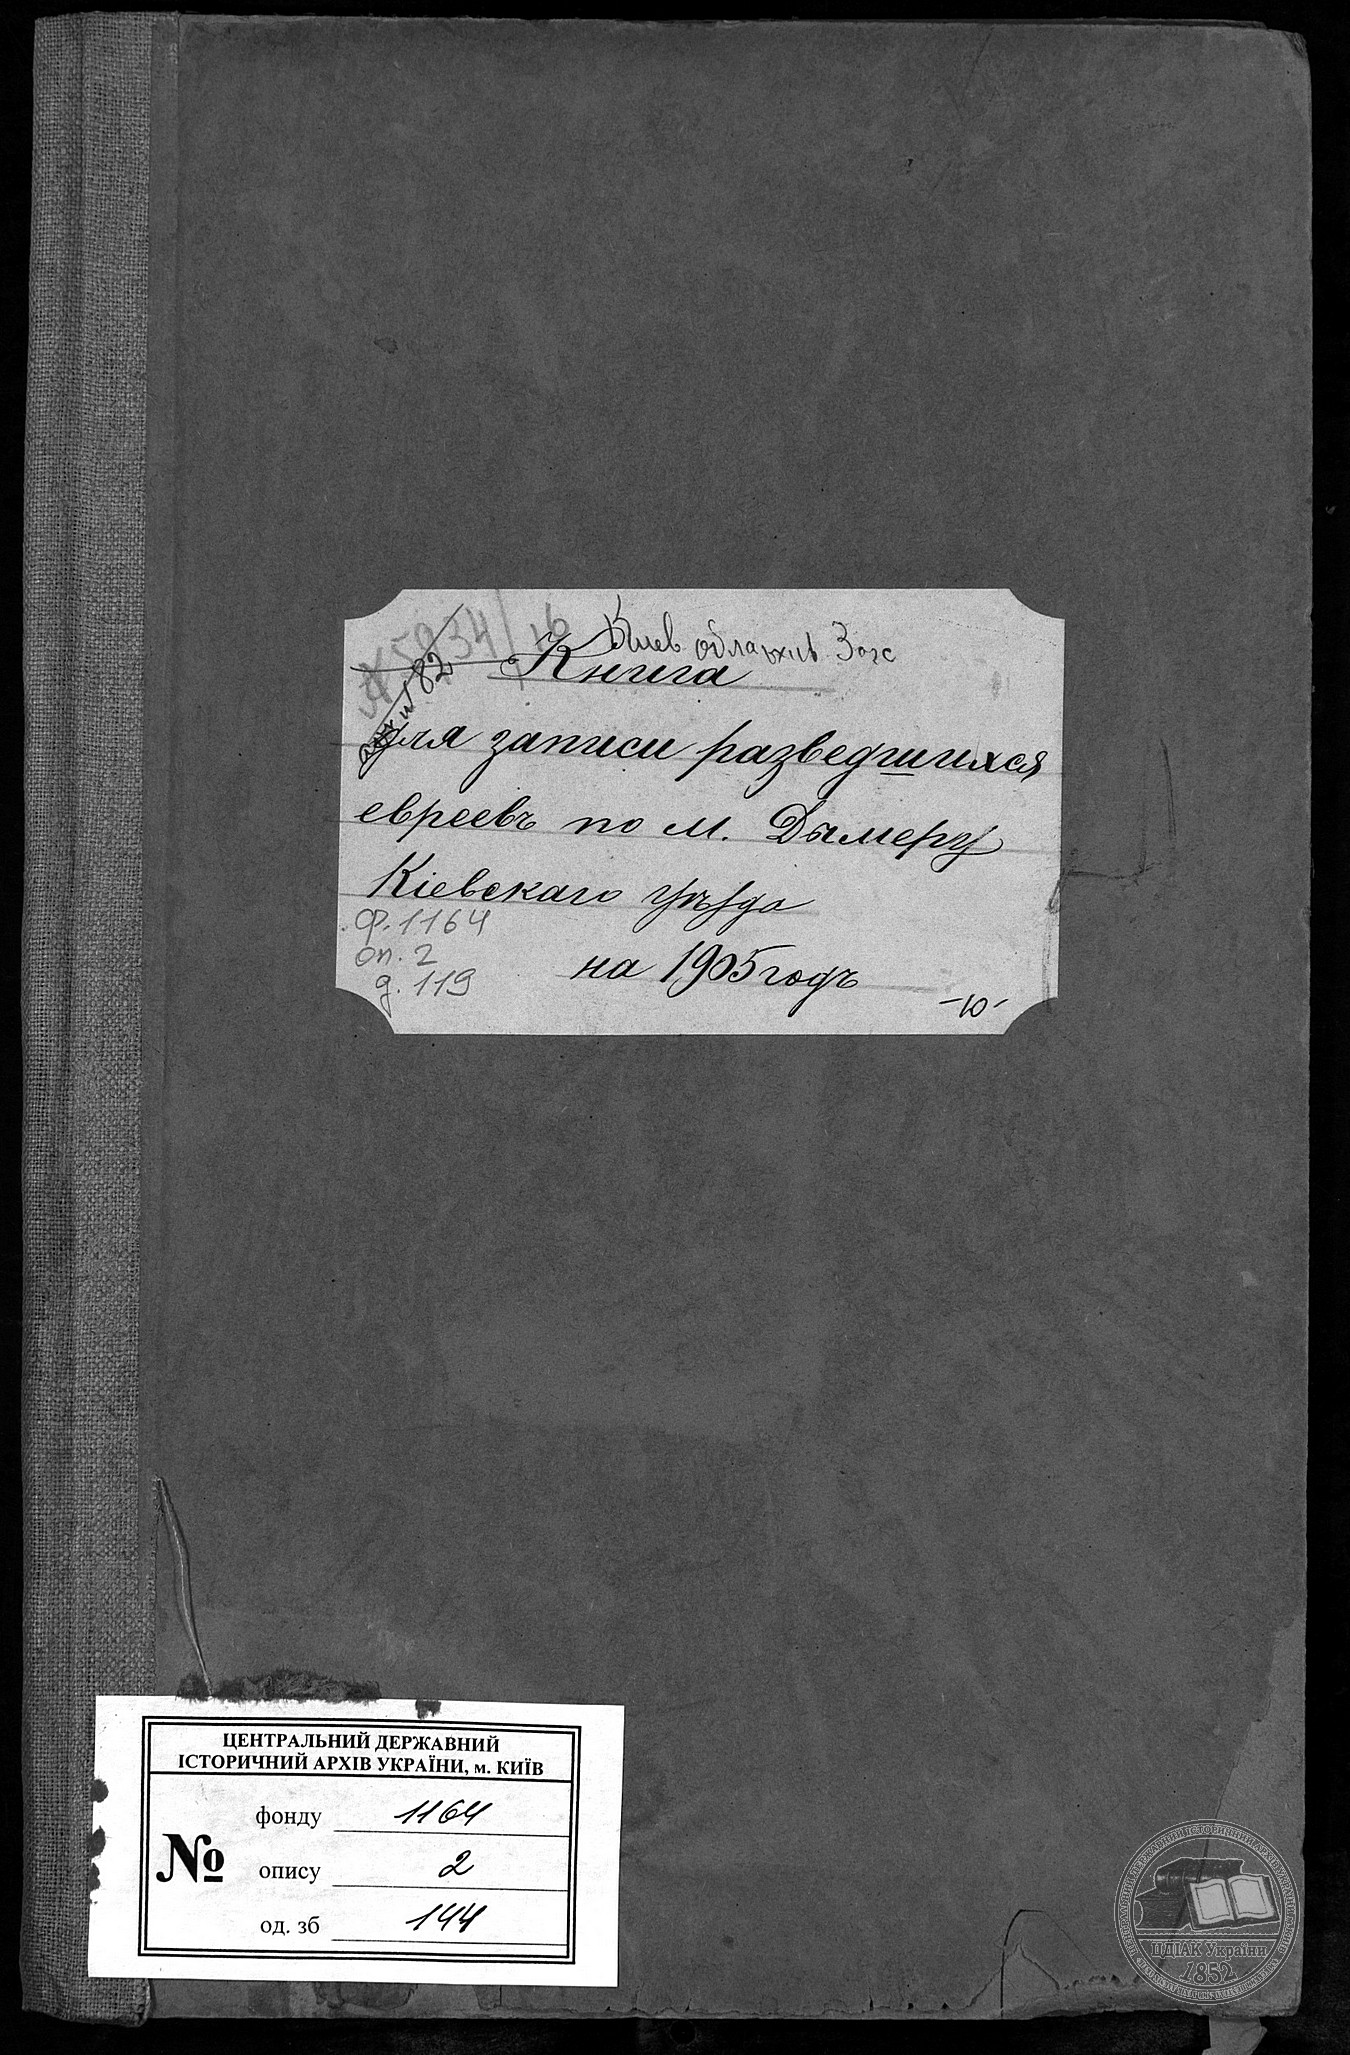 5834/16
Киев облархив Загс
82
Книга
для записи разведшихся
евреевъ по м. Дымеру
Кіевскаго уѣзда
ф. 1164
оп. 2
д. 119
на 1905 годъ
-10-
ЦЕНТРАЛЬНИЙ ДЕРЖАВНИЙ
ІСТОРИЧНИЙ АРХІВ УКРАЇНИ, м. КИЇВ
фонду 1164
№ опису 2
од. зб 144
ЦДІАК України
1852